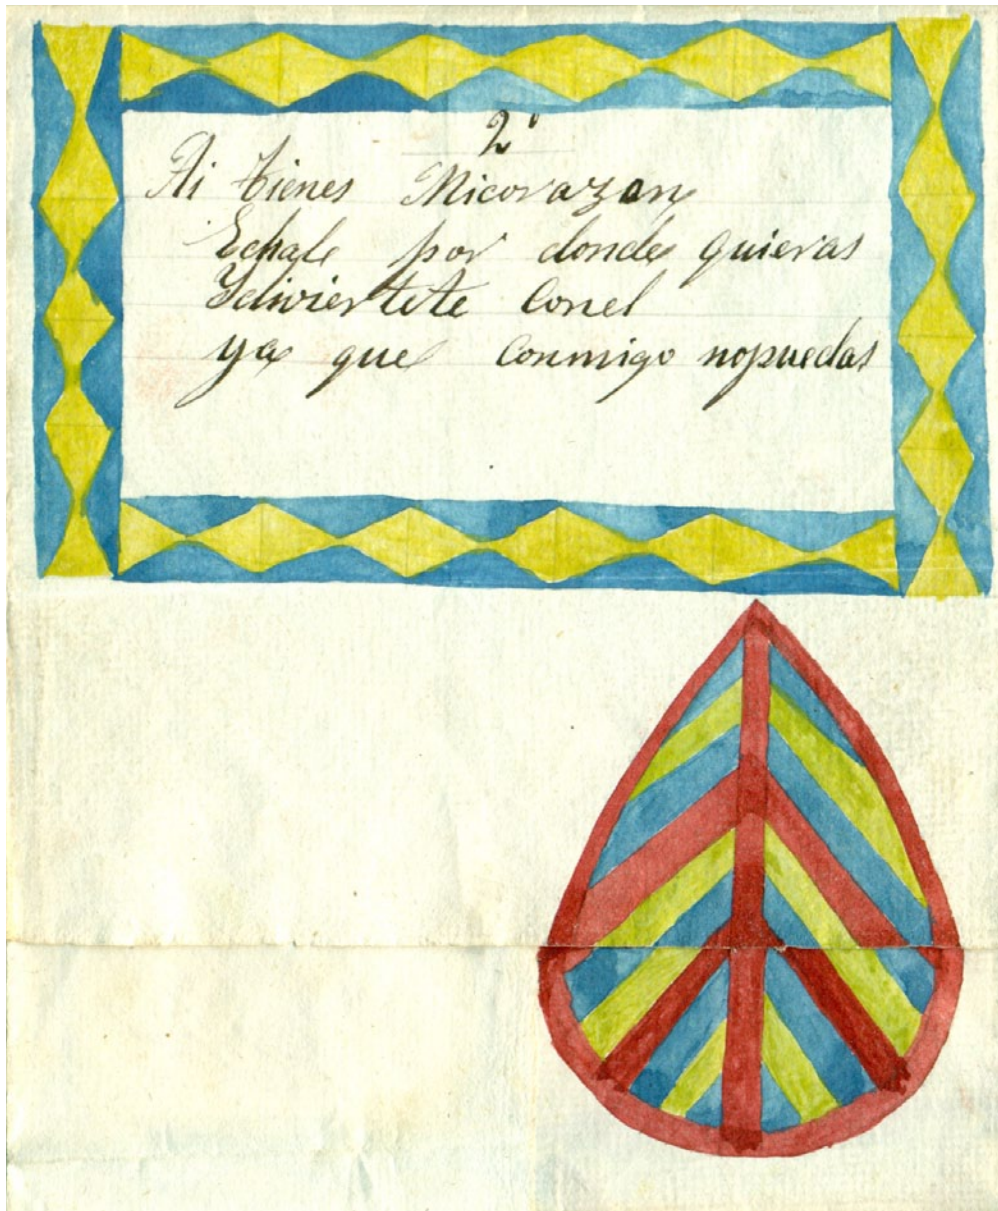 2º
Ai tienes Micorazon
Echale por donde quieras
Ydiviertete Conel
ya que Conmigo nopuedas